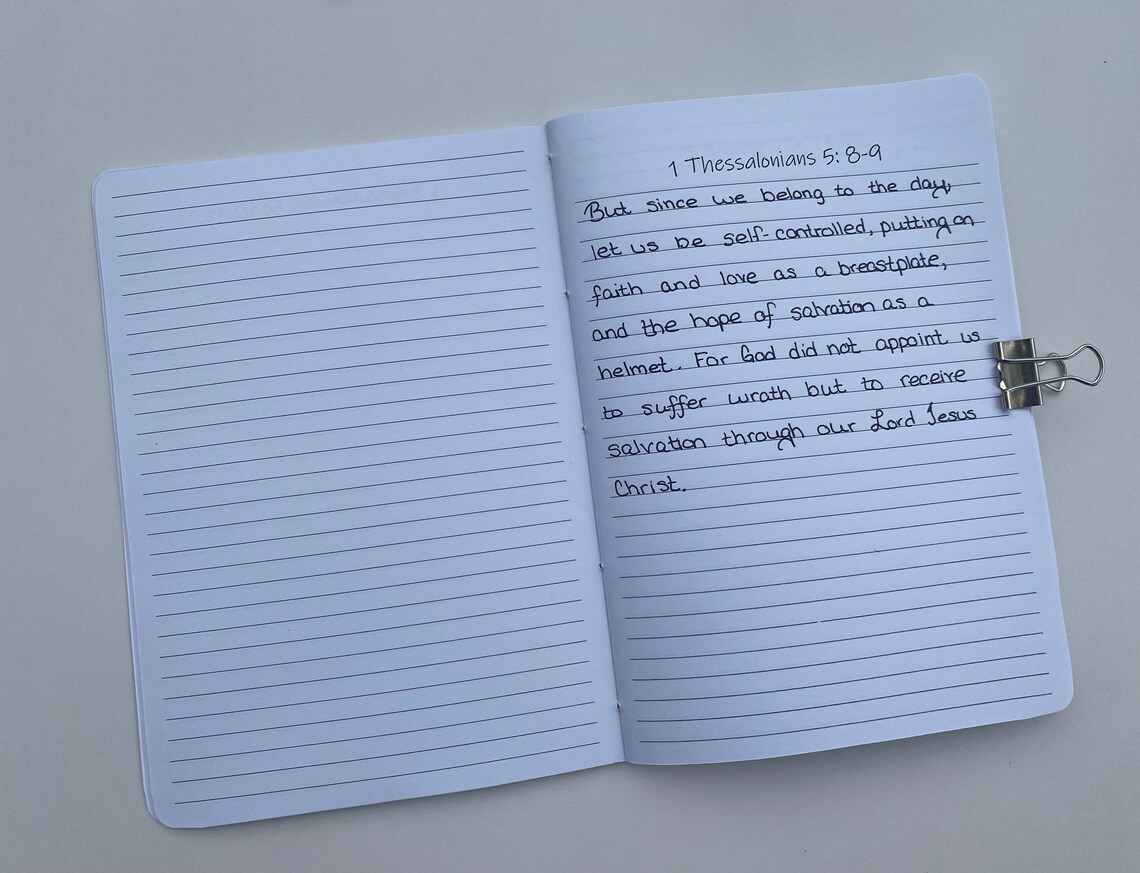 1 Thessalonians 5: 8-9
But since we belong to the day,
let us be self-controlled, putting on
faith and love as a breastplate,
and the hope of salvation as a
helmet. For God did not appoint us
to suffer wrath but to receive
salvation through our Lord Jesus
Christ.